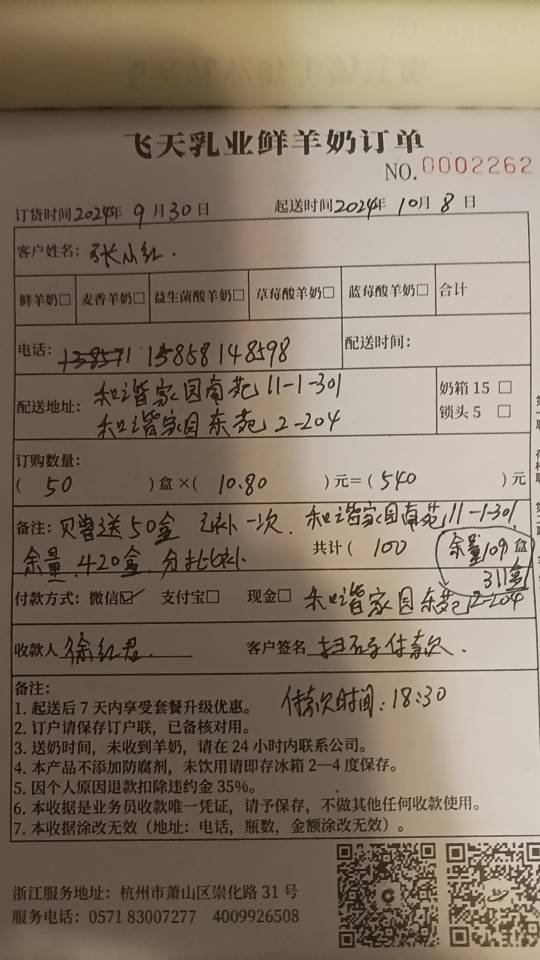 飞天乳业鲜羊奶订单
NO.0002262
订货时间2024年 9 月 30 日 起送时间2024年 10月 8 日
客户姓名：张小红.
鲜羊奶□ 麦香羊奶□ 益生菌酸羊奶□ 草莓酸羊奶□ 蓝莓酸羊奶□ 合计
电话：138571 13858148598 配送时间：
配送地址：和谐家园南苑11-1-301
和谐家园东苑2-204
奶箱 15 □
锁头 5 □
订购数量：
( 50 ) 盒 ×( 10.80 ) 元＝( 540 ) 元
备注：赠送50盒 已补一次. 和谐家园南苑11-1-301
余量.420盒.分批补 共计( 100 余量109盒
311盒
付款方式：微信☑ 支付宝□ 现金□ 和谐家园东苑2-204
收款人 徐红君. 客户签名 扫码付款.
备注：
付款时间：18:30
1. 起送后 7 天内享受套餐升级优惠。
2. 订户请保存订户联，已备核对用。
3. 送奶时间，未收到羊奶，请在 24 小时内联系公司。
4. 本产品不添加防腐剂，未饮用请即存冰箱 2—4 度保存。
5. 因个人原因退款扣除违约金 35%。
6. 本收据是业务员收款唯一凭证，请予保存，不做其他任何收款使用。
7. 本收据涂改无效（地址：电话，瓶数，金额涂改无效）。
浙江服务地址：杭州市萧山区崇化路 31 号
服务电话：0571 83007277 4009926508